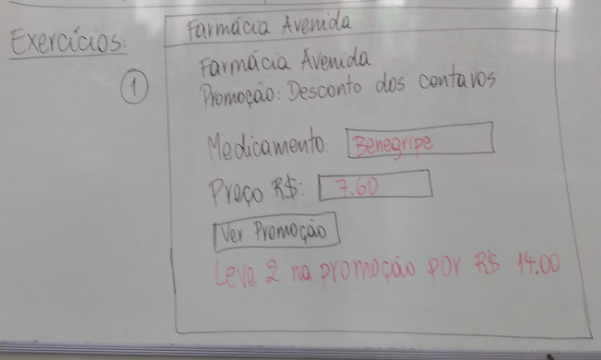 Exercícios:
Farmácia Avenida
1
Farmácia Avenida
Promoção: Desconto dos centavos
Medicamento: Benegripe
Preço R$: 7.60
Ver Promoção
Leve 2 na promoção por R$ 14.00